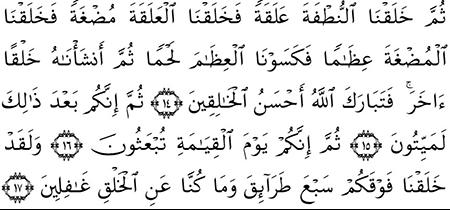 ثُمَّ خَلَقْنَا ٱلنُّطْفَةَ عَلَقَةً فَخَلَقْنَا ٱلْعَلَقَةَ مُضْغَةً فَخَلَقْنَا
ٱلْمُضْغَةَ عِظَٰمًا فَكَسَوْنَا ٱلْعِظَٰمَ لَحْمًا ثُمَّ أَنشَأْنَٰهُ خَلْقًا
ءَاخَرَۚ فَتَبَارَكَ ٱللَّهُ أَحْسَنُ ٱلْخَٰلِقِينَ ﴿١٤﴾ ثُمَّ إِنَّكُم بَعْدَ ذَٰلِكَ
لَمَيِّتُونَ ﴿١٥﴾ ثُمَّ إِنَّكُمْ يَوْمَ ٱلْقِيَٰمَةِ تُبْعَثُونَ ﴿١٦﴾ وَلَقَدْ
خَلَقْنَا فَوْقَكُمْ سَبْعَ طَرَآئِقَ وَمَا كُنَّا عَنِ ٱلْخَلْقِ غَٰفِلِينَ ﴿١٧﴾